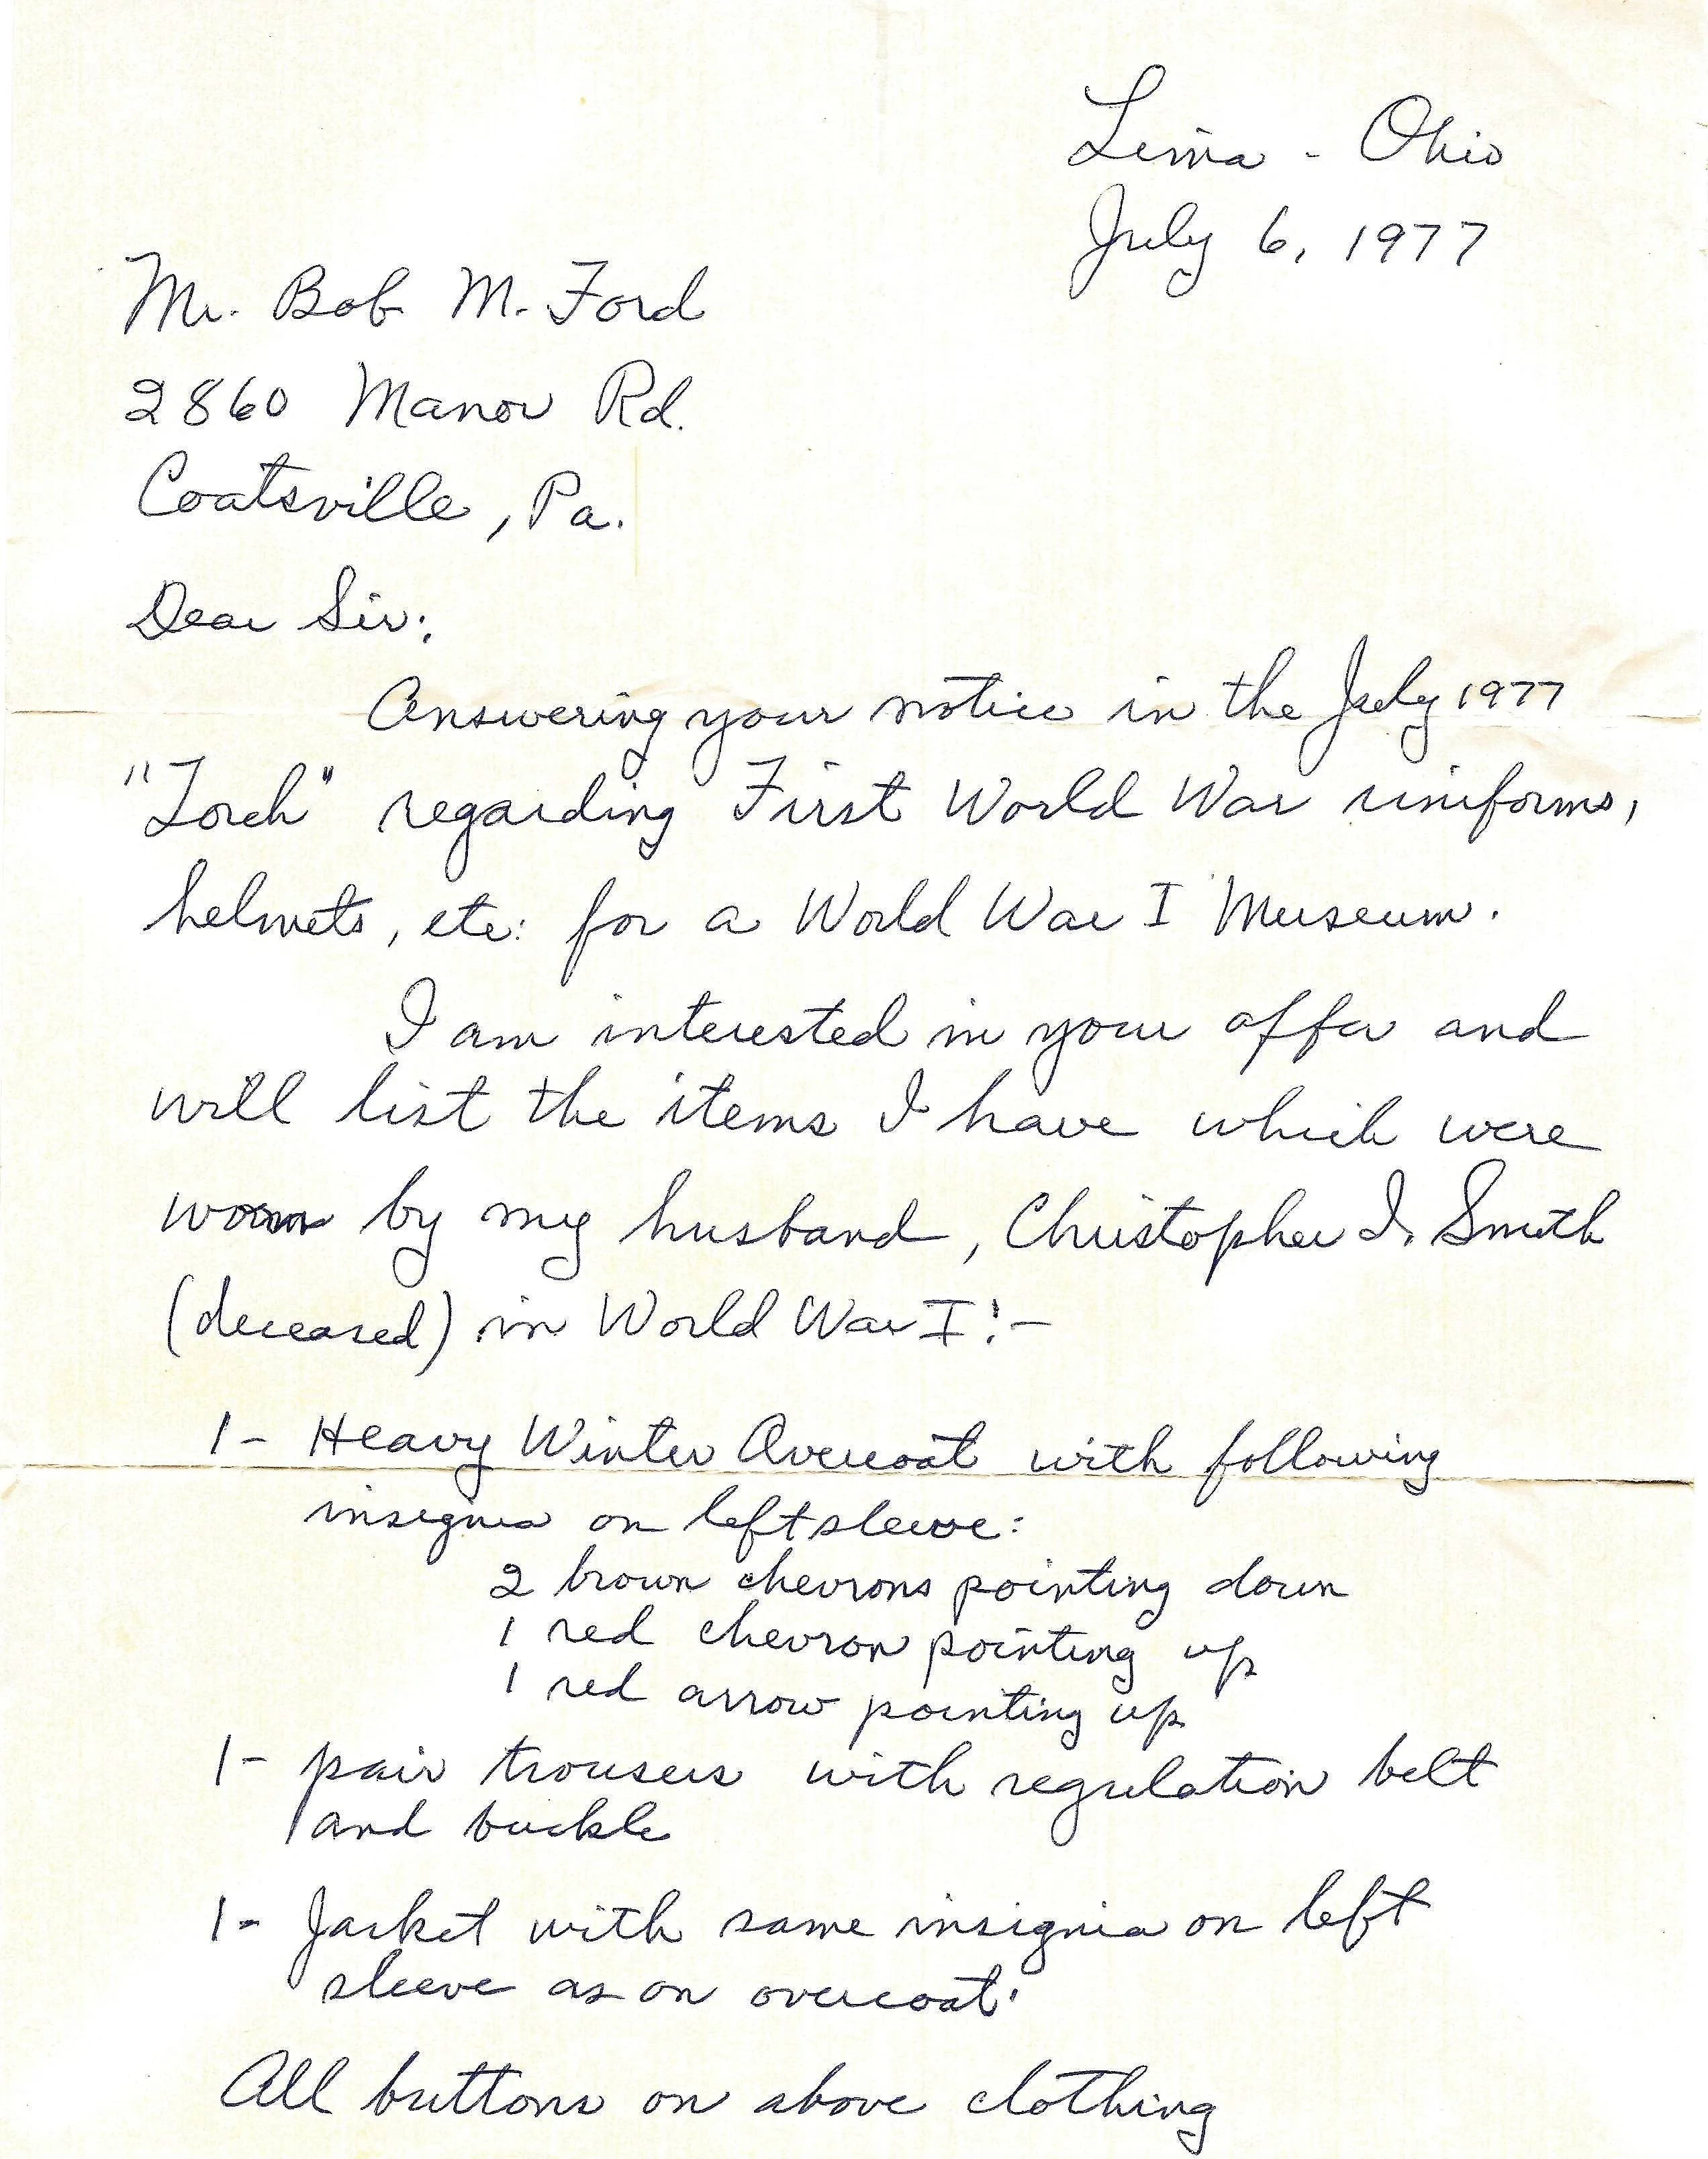 Lima - Ohio
July 6, 1977
Mr. Bob M. Ford
2860 Manor Rd.
Coatsville, Pa.
Dear Sir:
Answering your notice in the July 1977
"Torch" regarding First World War uniforms,
helmets, etc: for a World War I Museum.
I am interested in your offer and
will list the items I have which were
worn by my husband, Christopher I. Smith
(deceased) in World War I:-
1- Heavy Winter Overcoat with following
insignia on left sleeve:
2 brown chevrons pointing down
1 red chevron pointing up
1 red arrow pointing up
1- pair trousers with regulation belt
and buckle
1- Jacket with same insignia on left
sleeve as on overcoat.
All buttons on above clothing